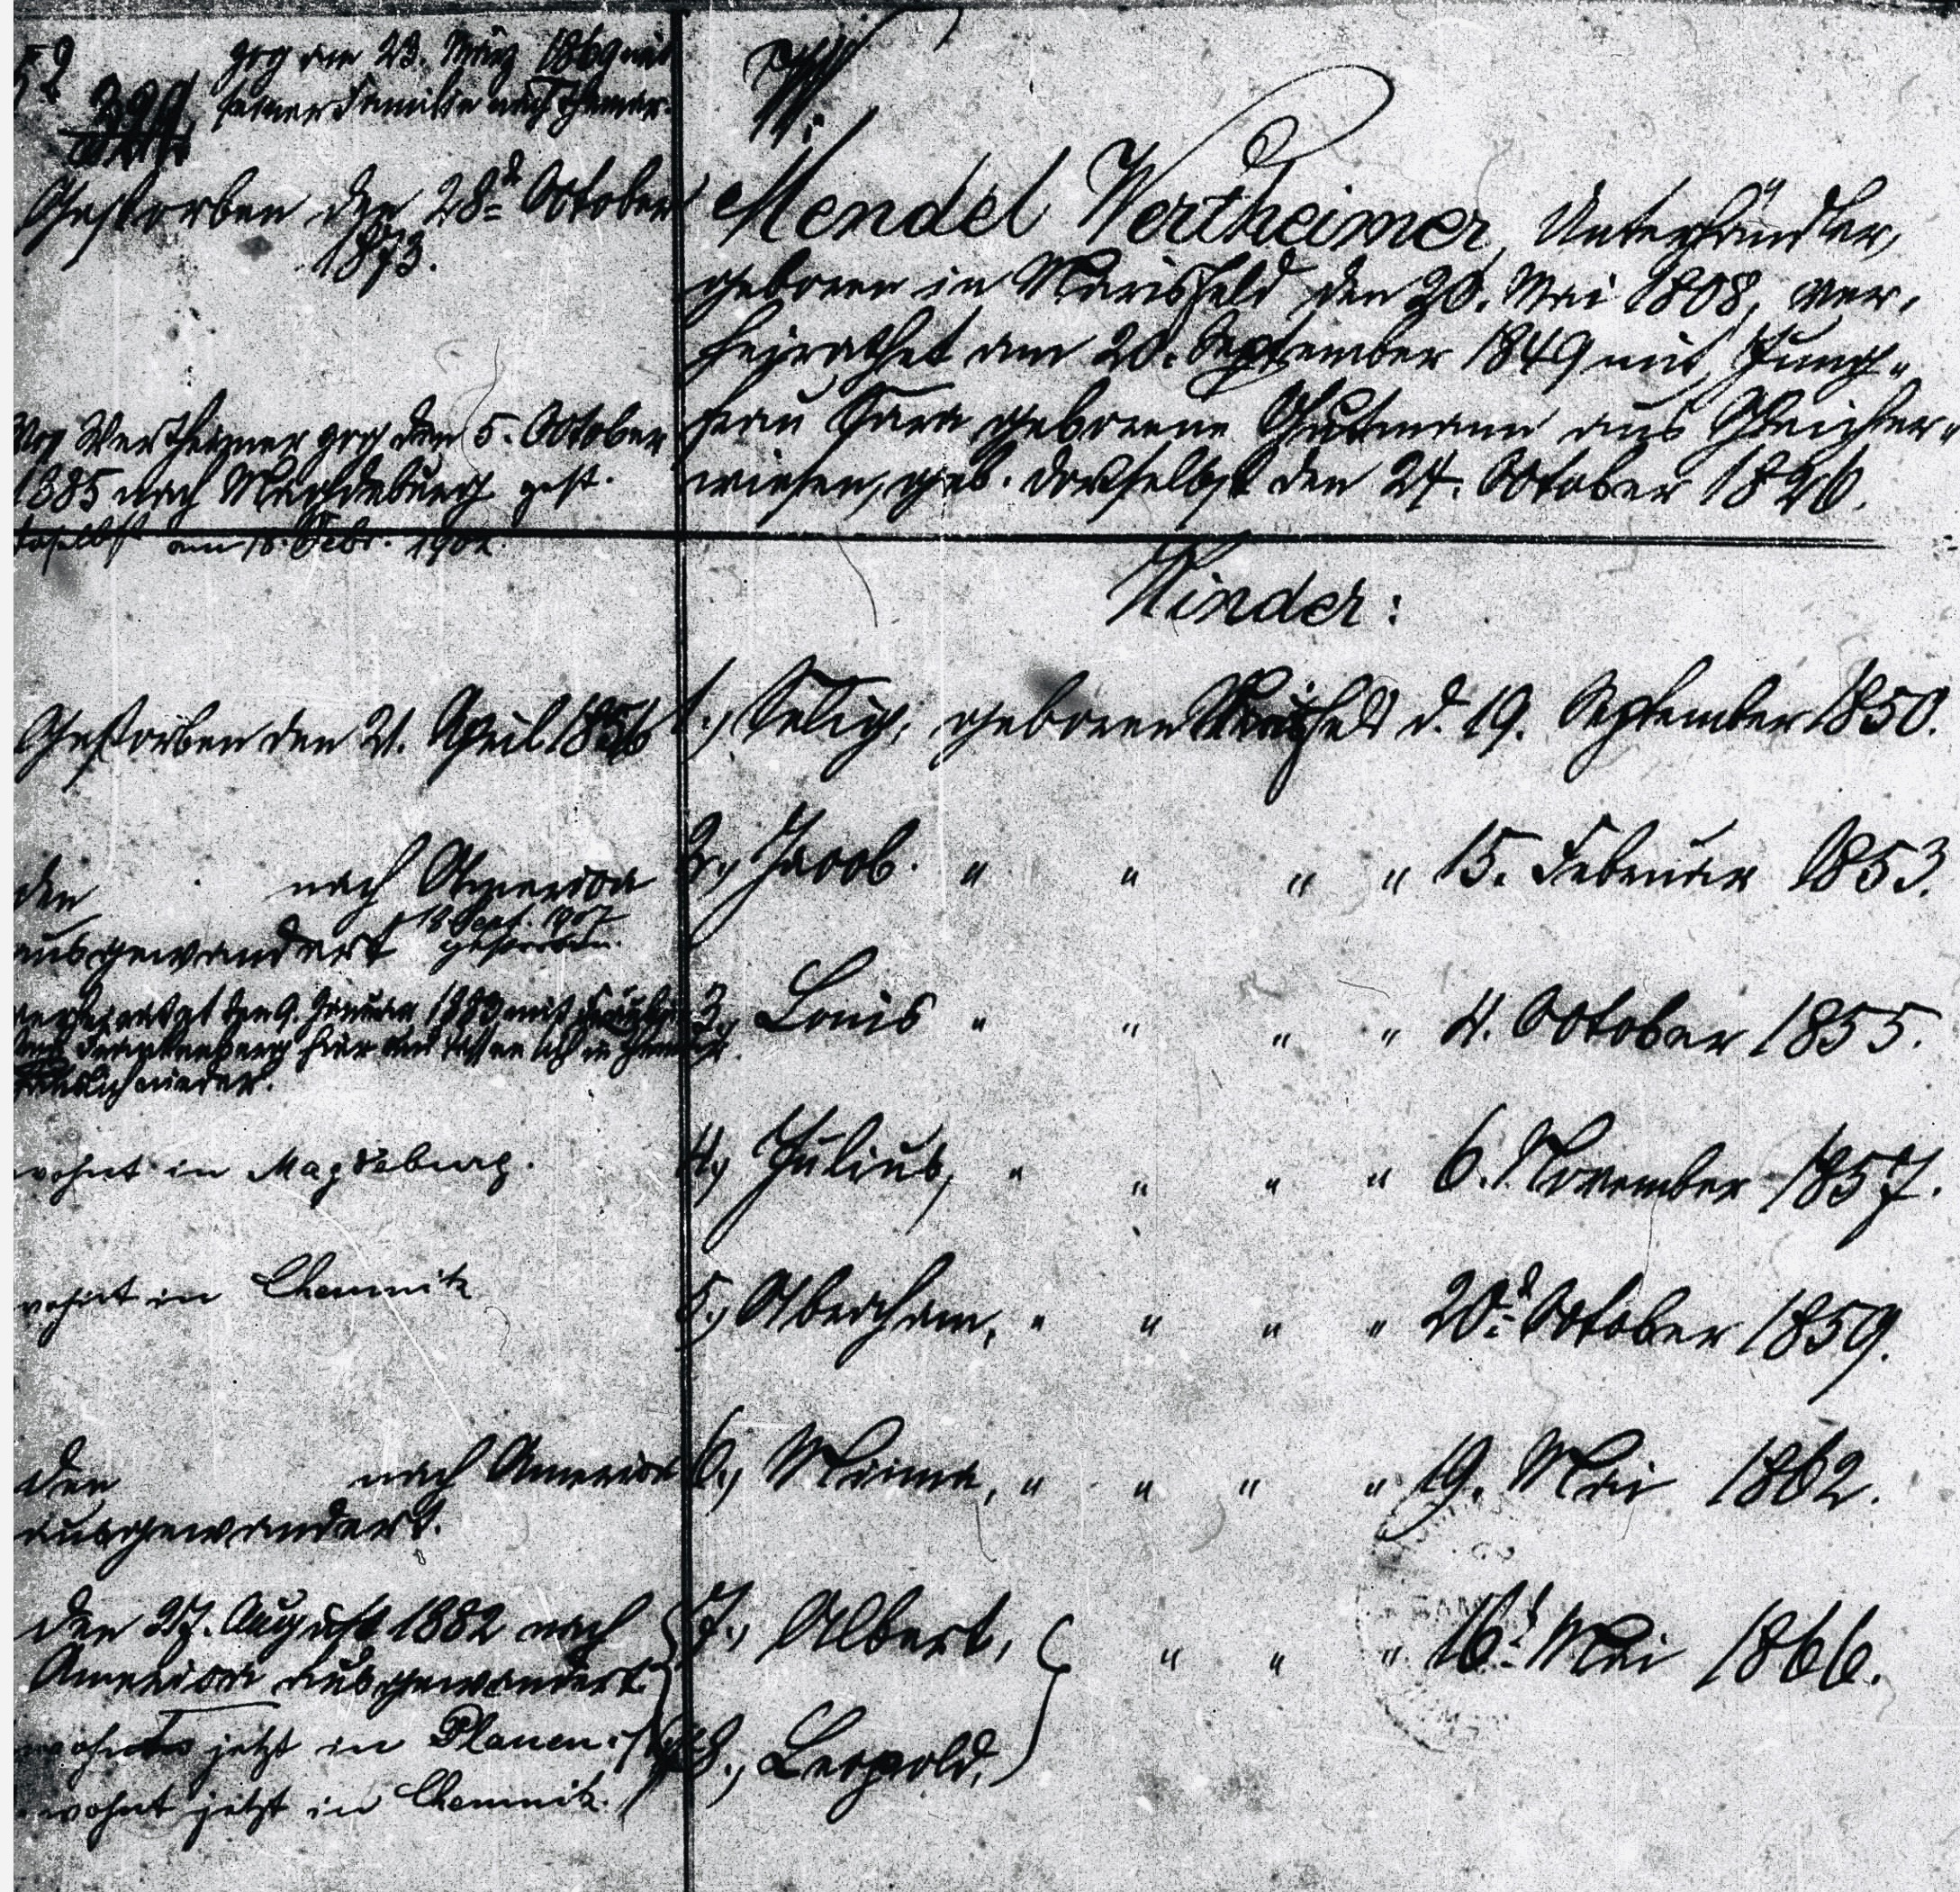 52
399
zog am 23. März 1869 mit
seiner Familie nach Themar.
Gestorben den 28. October
1873.
Mendel Wertheimer, Unterhändler,
geboren in Marisfeld den 20. Mai 1808, ver-
heirathet am 20. September 1849 mit Jung-
frau Sara geborene Gutmann aus Gleicher-
wiesen, geb. daselbst den 24. October 1826.
Wertheimer zog den 5. October
1885 nach Magdeburg gest.
daselbst am 18. Febr. 1902.
Kinder:
Gestorben den 21. April 1856
1., Selig, geboren Marisfeld d. 19. September 1850.
den nach America
ausgewandert 18. Sept. 1907
gestorben.
2., Jacob. " " " " 15. Februar 1853.
verheirathet den 9. Januar 1883 mit
Frankenberg hier und lassen sich in Themar
häuslich nieder.
3., Louis " " " " 4. October 1855.
wohnt in Magdeburg.
4., Julius, " " " " 6. November 1857.
wohnt in Chemnitz
5., Abraham, " " " " 20. October 1859.
den nach America
ausgewandert.
6., Minna, " " " " 19. Mai 1862.
den 27. August 1882 nach
America ausgewandert.
7., Albert, " " " 16. Mai 1866.
wohnt jetzt in Plauen
8., Leopold,
wohnt jetzt in Chemnitz.